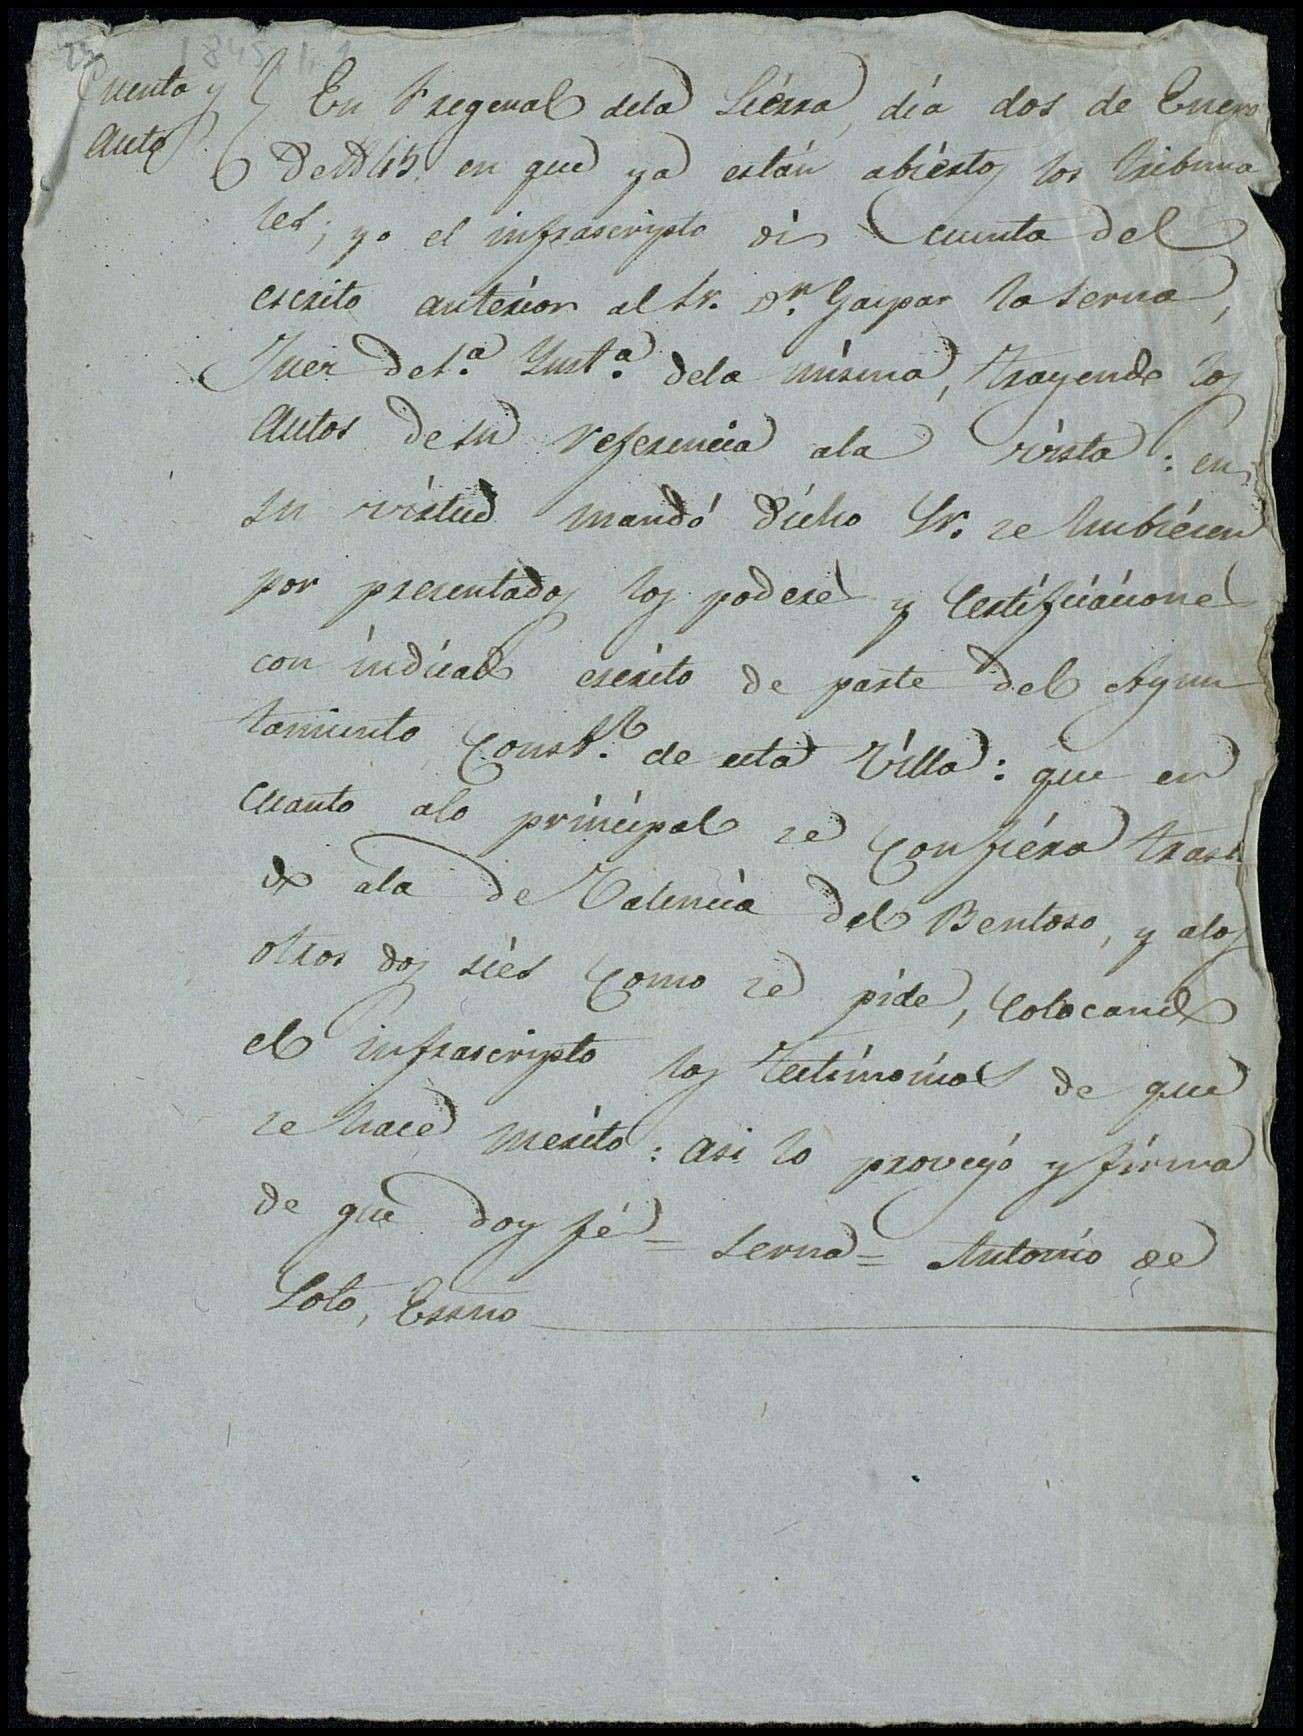 25 1845, 1, 2
Cuenta y
Auto
En Fregenal dela Sierra, día dos de Enero
de 1845 en que ya están abiertos los tribuna
les; yo el infrascripto dí cuenta del
escrito anterior al Sr. Dn. Gaspar la Serna,
Juez de 1.ª Inst.ª dela misma, trayendo los
Autos de su referencia ala vista: en
su virtud mandó dicho Sr. se hubiésen
por presentados los poderes y certificaciones
con indicado escrito de parte del Ayun
tamiento Const.l de esta Villa: que en
cuanto alo principal se confiéra trasla
do ala de Valencia del Bentoso, y alos
otros dos síes como se pide, colocando
el infrascripto los testimonios de que
se hace merito: asi lo proveyó y firma
de que doy fé = Serna = Antonio de
Soto, Essno